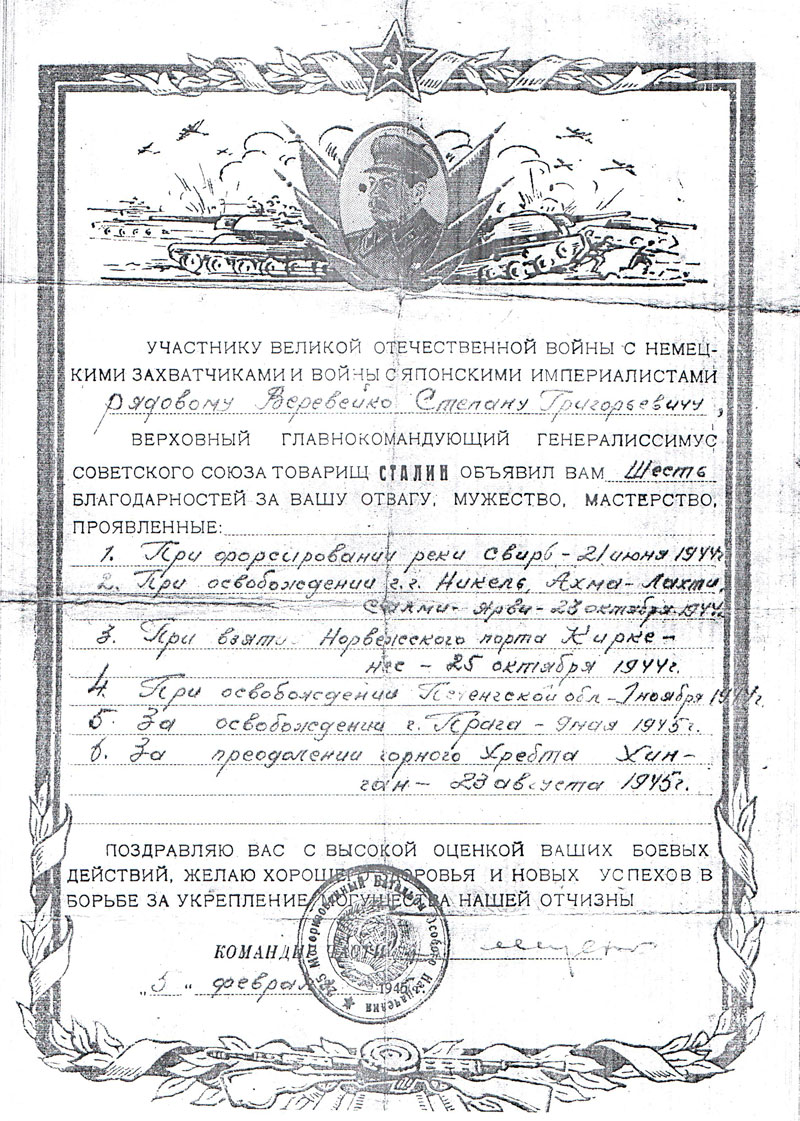 УЧАСТНИКУ ВЕЛИКОЙ ОТЕЧЕСТВЕННОЙ ВОЙНЫ С НЕМЕЦ-
КИМИ ЗАХВАТЧИКАМИ И ВОЙНЫ С ЯПОНСКИМИ ИМПЕРИАЛИСТАМИ
рядовому Веревейко Степану Григорьевичу,
ВЕРХОВНЫЙ ГЛАВНОКОМАНДУЮЩИЙ ГЕНЕРАЛИССИМУС
СОВЕТСКОГО СОЮЗА ТОВАРИЩ СТАЛИН ОБЪЯВИЛ ВАМ Шесть
БЛАГОДАРНОСТЕЙ ЗА ВАШУ ОТВАГУ, МУЖЕСТВО, МАСТЕРСТВО,
ПРОЯВЛЕННЫЕ:
1. При форсировании реки Свирь - 21 июня 1944г.
2. При освобождении г.г. Никель, Ахма-Лахти,
Салми-Ярви - 23 октября 1944г.
3. При взяти Норвежского порта Кирке-
нес - 25 октября 1944г.
4. При освобождении Петенгской обл - 1 ноября 1944г.
5. За освобождении г. Прага - 9 мая 1945г.
6. За преодолении горного Хребта Хин-
ган - 23 августа 1945г.
ПОЗДРАВЛЯЮ ВАС С ВЫСОКОЙ ОЦЕНКОЙ ВАШИХ БОЕВЫХ
ДЕЙСТВИЙ, ЖЕЛАЮ ХОРОШЕГО ЗДОРОВЬЯ И НОВЫХ УСПЕХОВ В
БОРЬБЕ ЗА УКРЕПЛЕНИЕ МОГУЩЕСТВА НАШЕЙ ОТЧИЗНЫ
КОМАНДИР ЧАСТИ
"5" февраля 1946
Моторизованный Батальон Особого Назначения